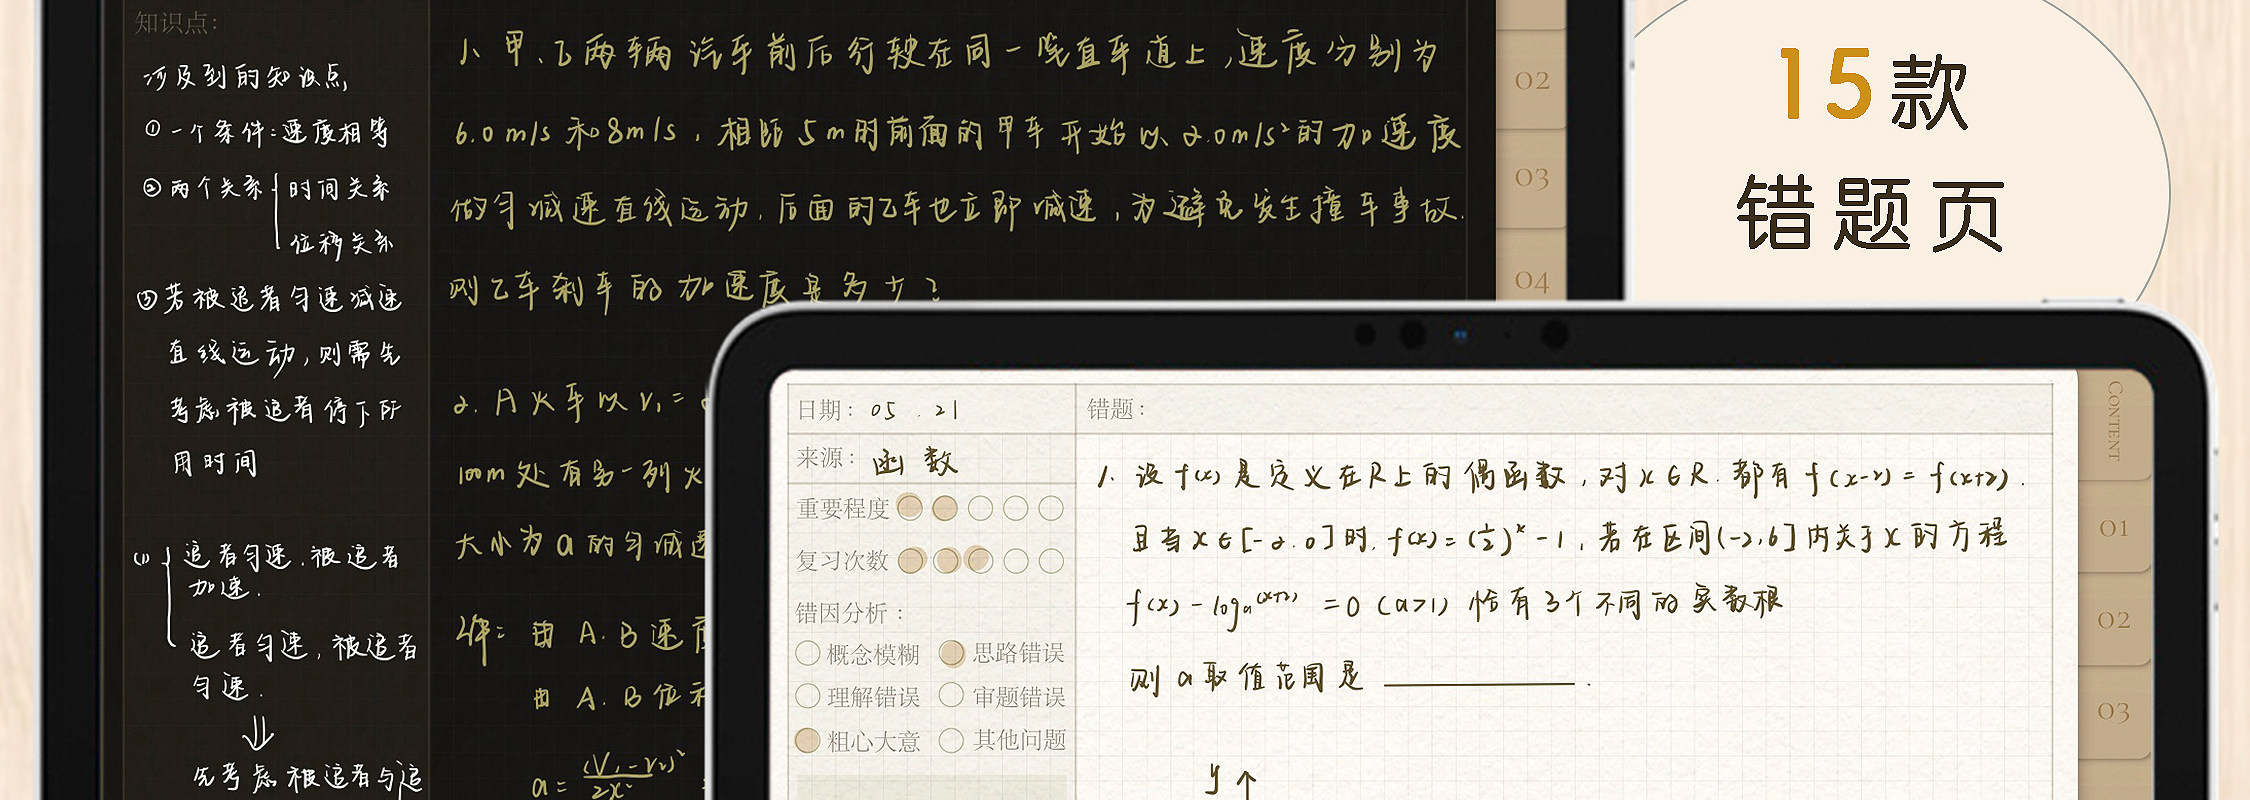 知识点:
涉及到的知识点
①一个条件:速度相等
②两个关系 时间关系
位移关系
③若被追者匀速减速
直线运动,则需先
考虑被追者停下所
用时间
(1) 追者匀速.被追者
加速.
追者匀速,被追者
匀速.
⇓
先考虑被追者与追
1、甲、乙两辆汽车前后行驶在同一笔直车道上,速度分别为
6.0m/s和8m/s,相距5m时前面的甲车开始以2.0m/s²的加速度
做匀减速直线运动,后面的乙车也立即减速,为避免发生撞车事故.
则乙车刹车的加速度是多少?
2. A火车以V₁=
100m处有另一列火
大小为a的匀减速
解: 由A.B速度
由A.B位移
a=(V₁-V₂)²/2x
02
03
04
15款
错题页
日期: 05.21
来源: 函数
重要程度
复习次数
错因分析:
概念模糊 思路错误
理解错误 审题错误
粗心大意 其他问题
错题:
1. 设f(x)是定义在R上的偶函数,对x∈R.都有f(x-2)=f(x+2).
且当x∈[-2.0]时.f(x)=(1/2)ˣ-1,若在区间(-2,6]内关于x的方程
f(x)-logₐ(x+2)=0(a>1)恰有3个不同的实数根
则a取值范围是________.
y↑
CONTENT
01
02
03